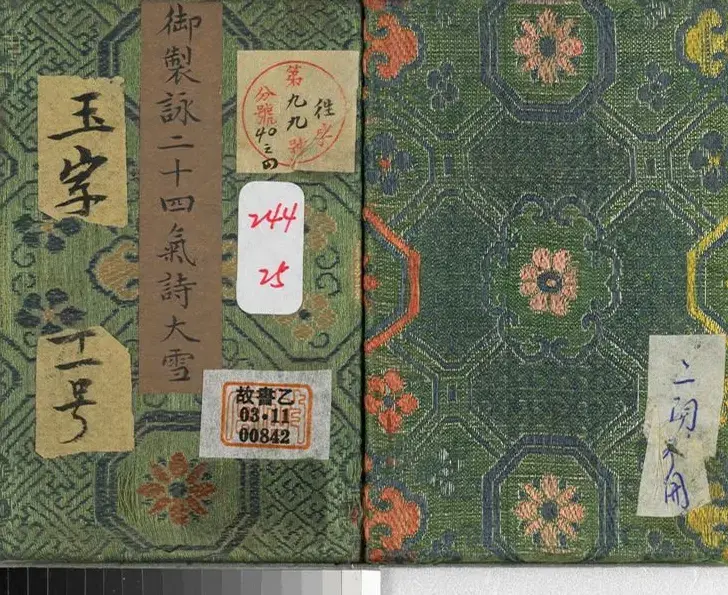 御製詠二十四氣詩大雪
玉字
十一号
往字
第九九號
分號40之四
244
25
故書乙
03·11
00842